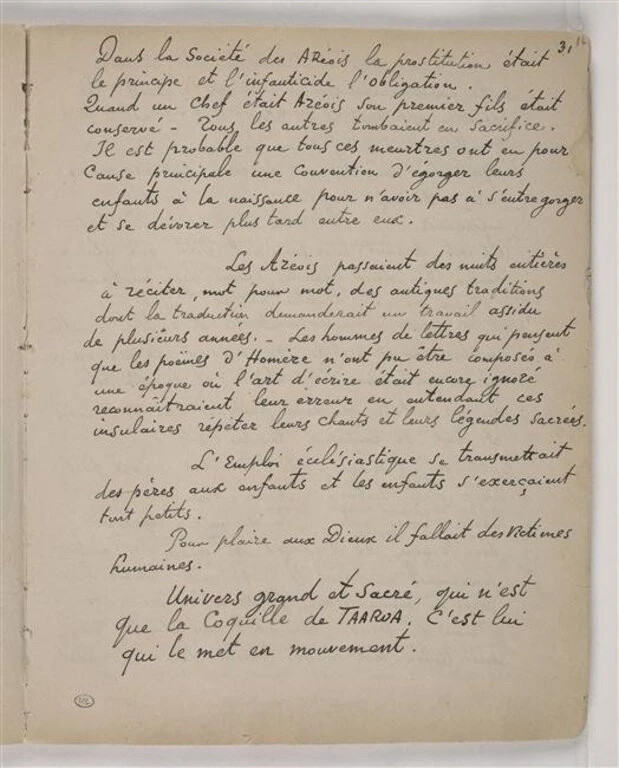 31
Dans la Société des Aréois la prostitution était
le principe et l'infanticide l'obligation.
Quand un Chef était Aréois son premier fils était
conservé - Tous les autres tombaient en Sacrifice.
Il est probable que tous ces meurtres ont eu pour
Cause principale une Convention d'égorger leurs
enfants à la naissance pour n'avoir pas à s'entregorger
et se dévorer plus tard entre eux.
Les Aréois passaient des nuits entières
à réciter, mot pour mot, des antiques traditions
dont la traduction demanderait un travail assidu
de plusieurs années. - Les hommes de lettres qui pensent
que les poëmes d'Homère n'ont pu être composés à
une époque où l'art d'écrire était encore ignoré
reconnaîtraient leur erreur en entendant ces
insulaires répéter leurs chants et leurs légendes sacrées.
L'Emploi écclésiastique se transmettait
des pères aux enfants et les enfants s'exerçaient
tout petits.
Pour plaire aux Dieux il fallait des victimes
humaines.
Univers grand et Sacré, qui n'est
que la Coquille de TAAROA. C'est lui
qui le met en mouvement.